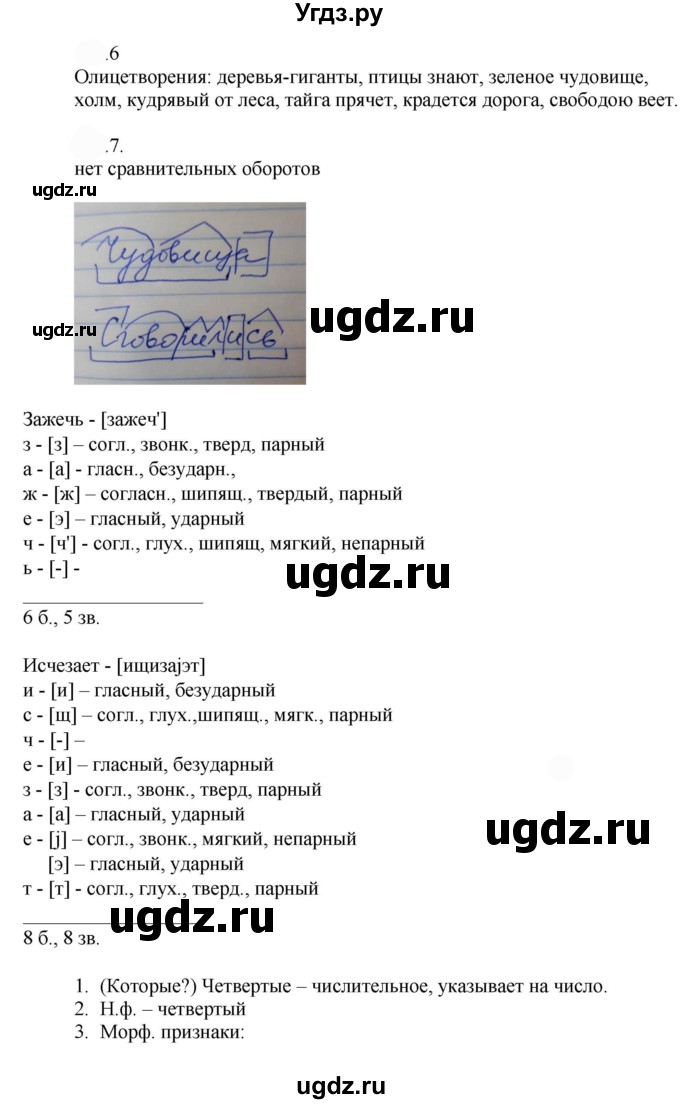 Угдз.ру
.6
Олицетворения: деревья-гиганты, птицы знают, зеленое чудовище,
холм, кудрявый от леса, тайга прячет, крадется дорога, свободою веет.
.7.
нет сравнительных оборотов
ugdz.ru
Чудовища
ugdz.ru
ugdz.ru
Сговорились
Зажечь - [зажеч']
з - [з] – согл., звонк., тверд, парный
а - [а] - гласн., безударн.,
ж - [ж] – согласн., шипящ., твердый, парный
е - [э] – гласный, ударный
ч - [ч'] - согл., глух., шипящ, мягкий, непарный
ь - [-] -
ugdz.ru
6 б., 5 зв.
Исчезает - [ищизаjэт]
и - [и] – гласный, безударный
с - [щ] – согл., глух.,шипящ., мягк., парный
ч - [-] –
е - [и] – гласный, безударный
з - [з] - согл., звонк., тверд, парный
а - [а] – гласный, ударный
е - [j] – согл., звонк., мягкий, непарный
ugdz.ru
[э] – гласный, ударный
т - [т] - согл., глух., тверд., парный
ugdz.ru
8 б., 8 зв.
1. (Которые?) Четвертые – числительное, указывает на число.
2. Н.ф. – четвертый
3. Морф. признаки:
ugdz.ru